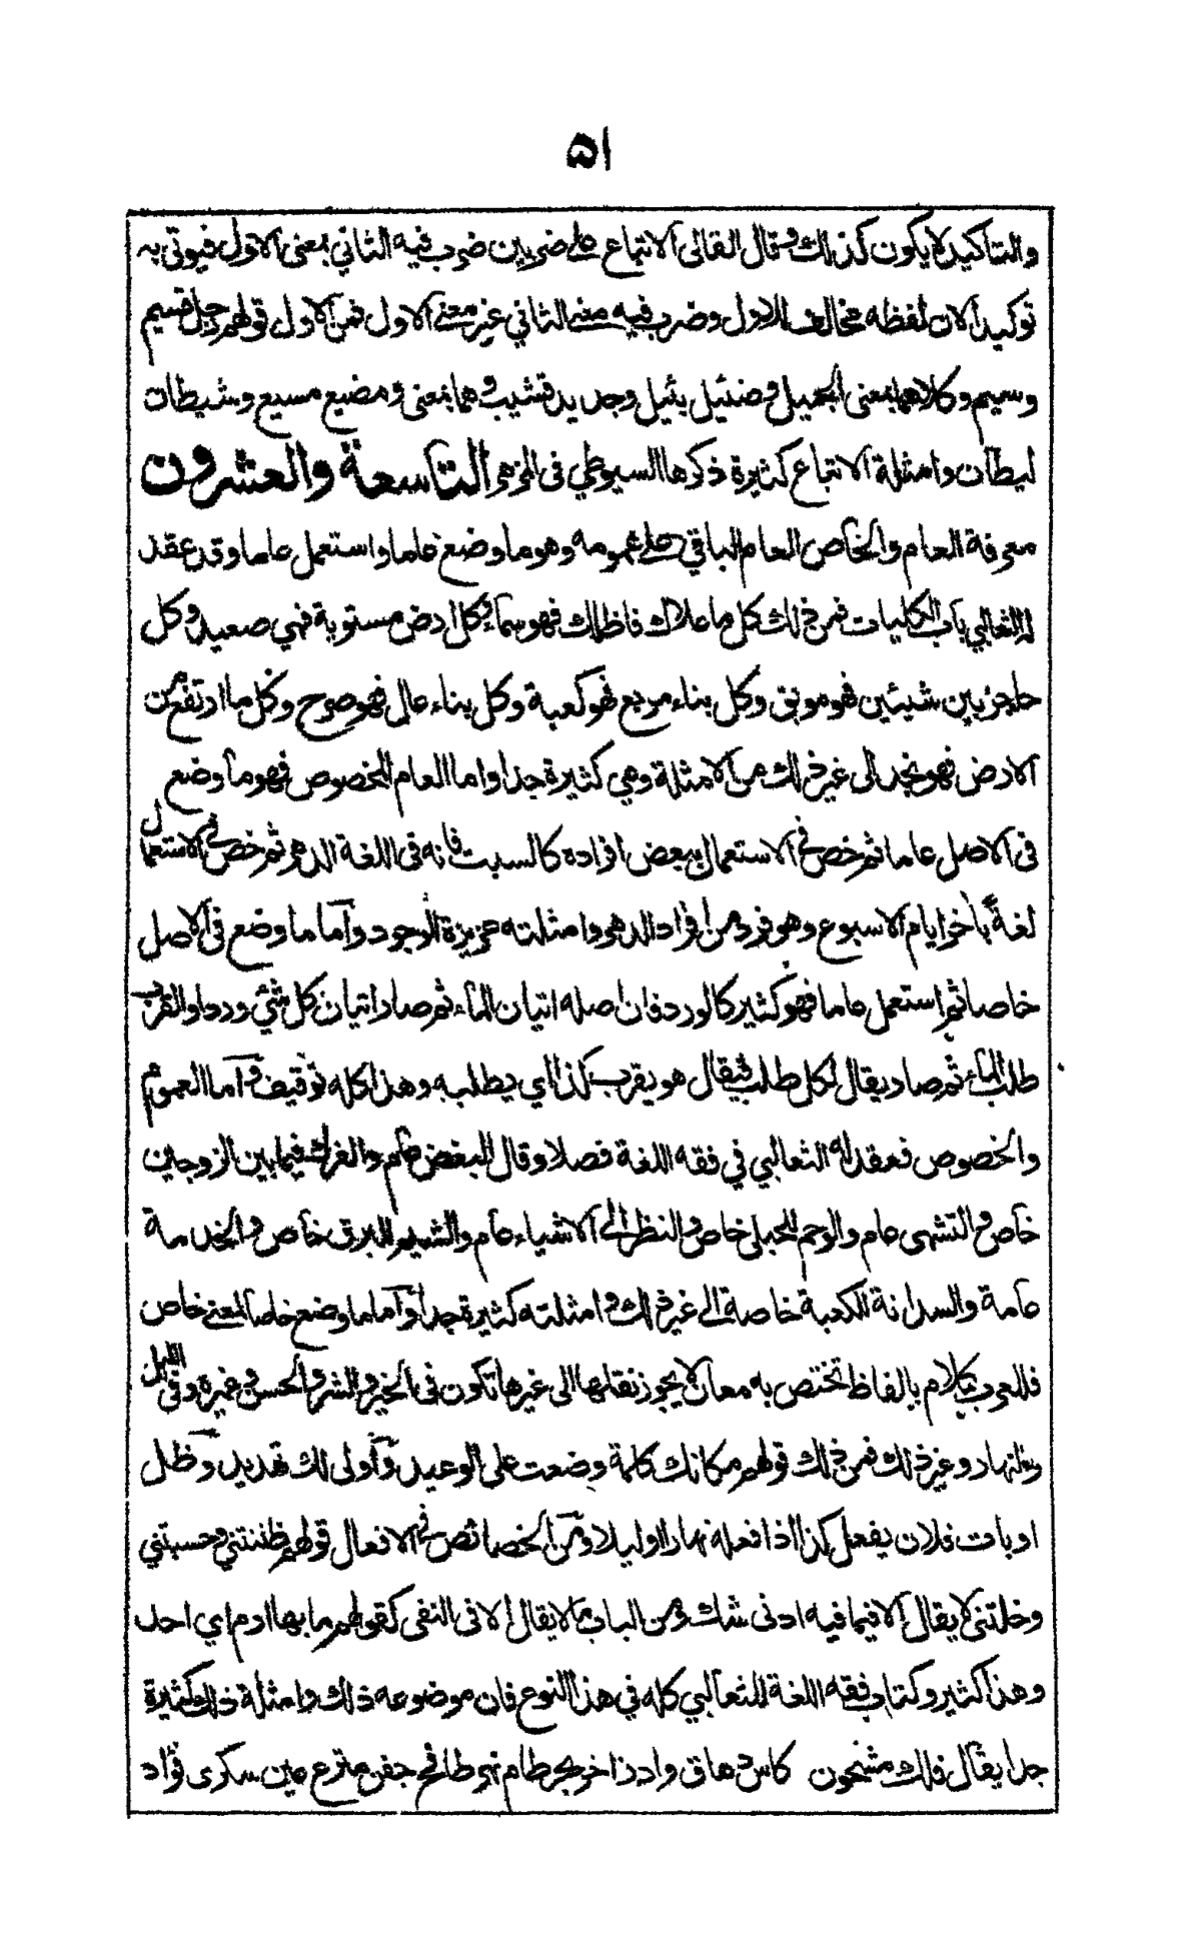 ٥١
والتاكيد لا يكون كذلك وقال القالى الاتباع على ضربين ضرب فيه الثاني بمعنى الاول فيوتى به
توكيدا لان لفظه مخالف للاول وضرب فيه معنى الثاني غير معنى الاول فمن الاول قولهم رجل قسيم
وسيم وكلاهما بمعنى الجميل وضئيل بئيل وجديد قشيب وهما بمعنى ومضيع مسيع وشيطان
ليطان وامثلة الاتباع كثيرة ذكرها السيوطي فى المزهر التاسعة والعشرون
معرفة العام والخاص العام الباقي على عمومه وهو ما وضع عاما واستعمل عاما وقد عقد
له الثعالبي باب الكليات فمن ذلك كل ما علاك فاظلك فهو سماء وكل ارض مستوية فهي صعيد وكل
حاجز بين شيئين فهو موبق وكل بناء مربع فهو كعبة وكل بناء عالى فهو صرح وكل ما ارتفع من
الارض فهو نجد الى غير ذلك من الامثلة وهي كثيرة جدا واما العام المخصوص فهو ما وضع
فى الاصل عاما ثم خص في الاستعمال ببعض افراده كالسبت فانه فى اللغة الدهر ثم خص في الاستعمال
لغة باخر ايام الاسبوع وهو فرد من افراد الدهر وامثلته عزيزة الوجود واما ما وضع فى الاصل
خاصا ثم استعمل عاما فهو كثير كالورد فان اصله اتيان الماء ثم صار اتيان كل شئ وردا والقرب
طلب الماء ثم صار يقال لكل طلب فيقال هو يقرب كذا اي يطلبه وهذا كله توقيف واما العموم
والخصوص فعقد له الثعالبي في فقه اللغة فصلا وقال البغض عام والفرك فيما بين الزوجين
خاص والتشهى عام والوحم للحبلى خاص والنظر الى الاشياء عام والشيم للبرق خاص والخدمة
عامة والسدانة للكعبة خاصة الى غير ذلك وامثلته كثيرة جدا واما ما وضع خاصا لمعنى خاص
فللعرب كلام بالفاظ تختص به معان لا يجوز نقلها الى غيرها تكون فى الخير والشر والحسن وغيره وفى الليل
والنهار وغير ذلك فمن ذلك قولهم مكانك كلمة وضعت على الوعيد واولى لك تهديد وظل
او بات فلان يفعل كذا اذا فعله نهارا او ليلا ومن الخصائص في الافعال قولهم ظننتني وحسبتني
وخلتني لا يقال الا فيما فيه ادنى شك ومن الباب ما لا يقال الا فى النفى كقولهم ما بها ارم اي احد
وهذا كثير وكتاب فقه اللغة للثعالبي كله في هذا النوع فان موضوعه ذلك وامثلة ذلك كثيرة
جدا يقال فلك مشحون كاس دهاق واد زاخر بحر طام نهر طافح جفن مترع عين سكرى فؤاد